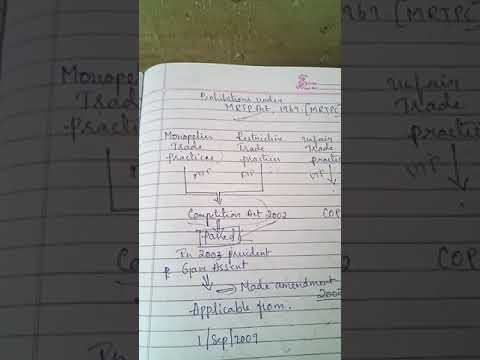 Prohibitions under
MRTP Act, 1969. [MRTPC]
Monopolies Restrictive unfair
Trade Trade Trade
practices practices practi
MTP RTP UTP
Competition Act 2002 COP
Passed
In 2003 president
Gave Assent
Made amendment
Applicable from.
1/Sep/2009